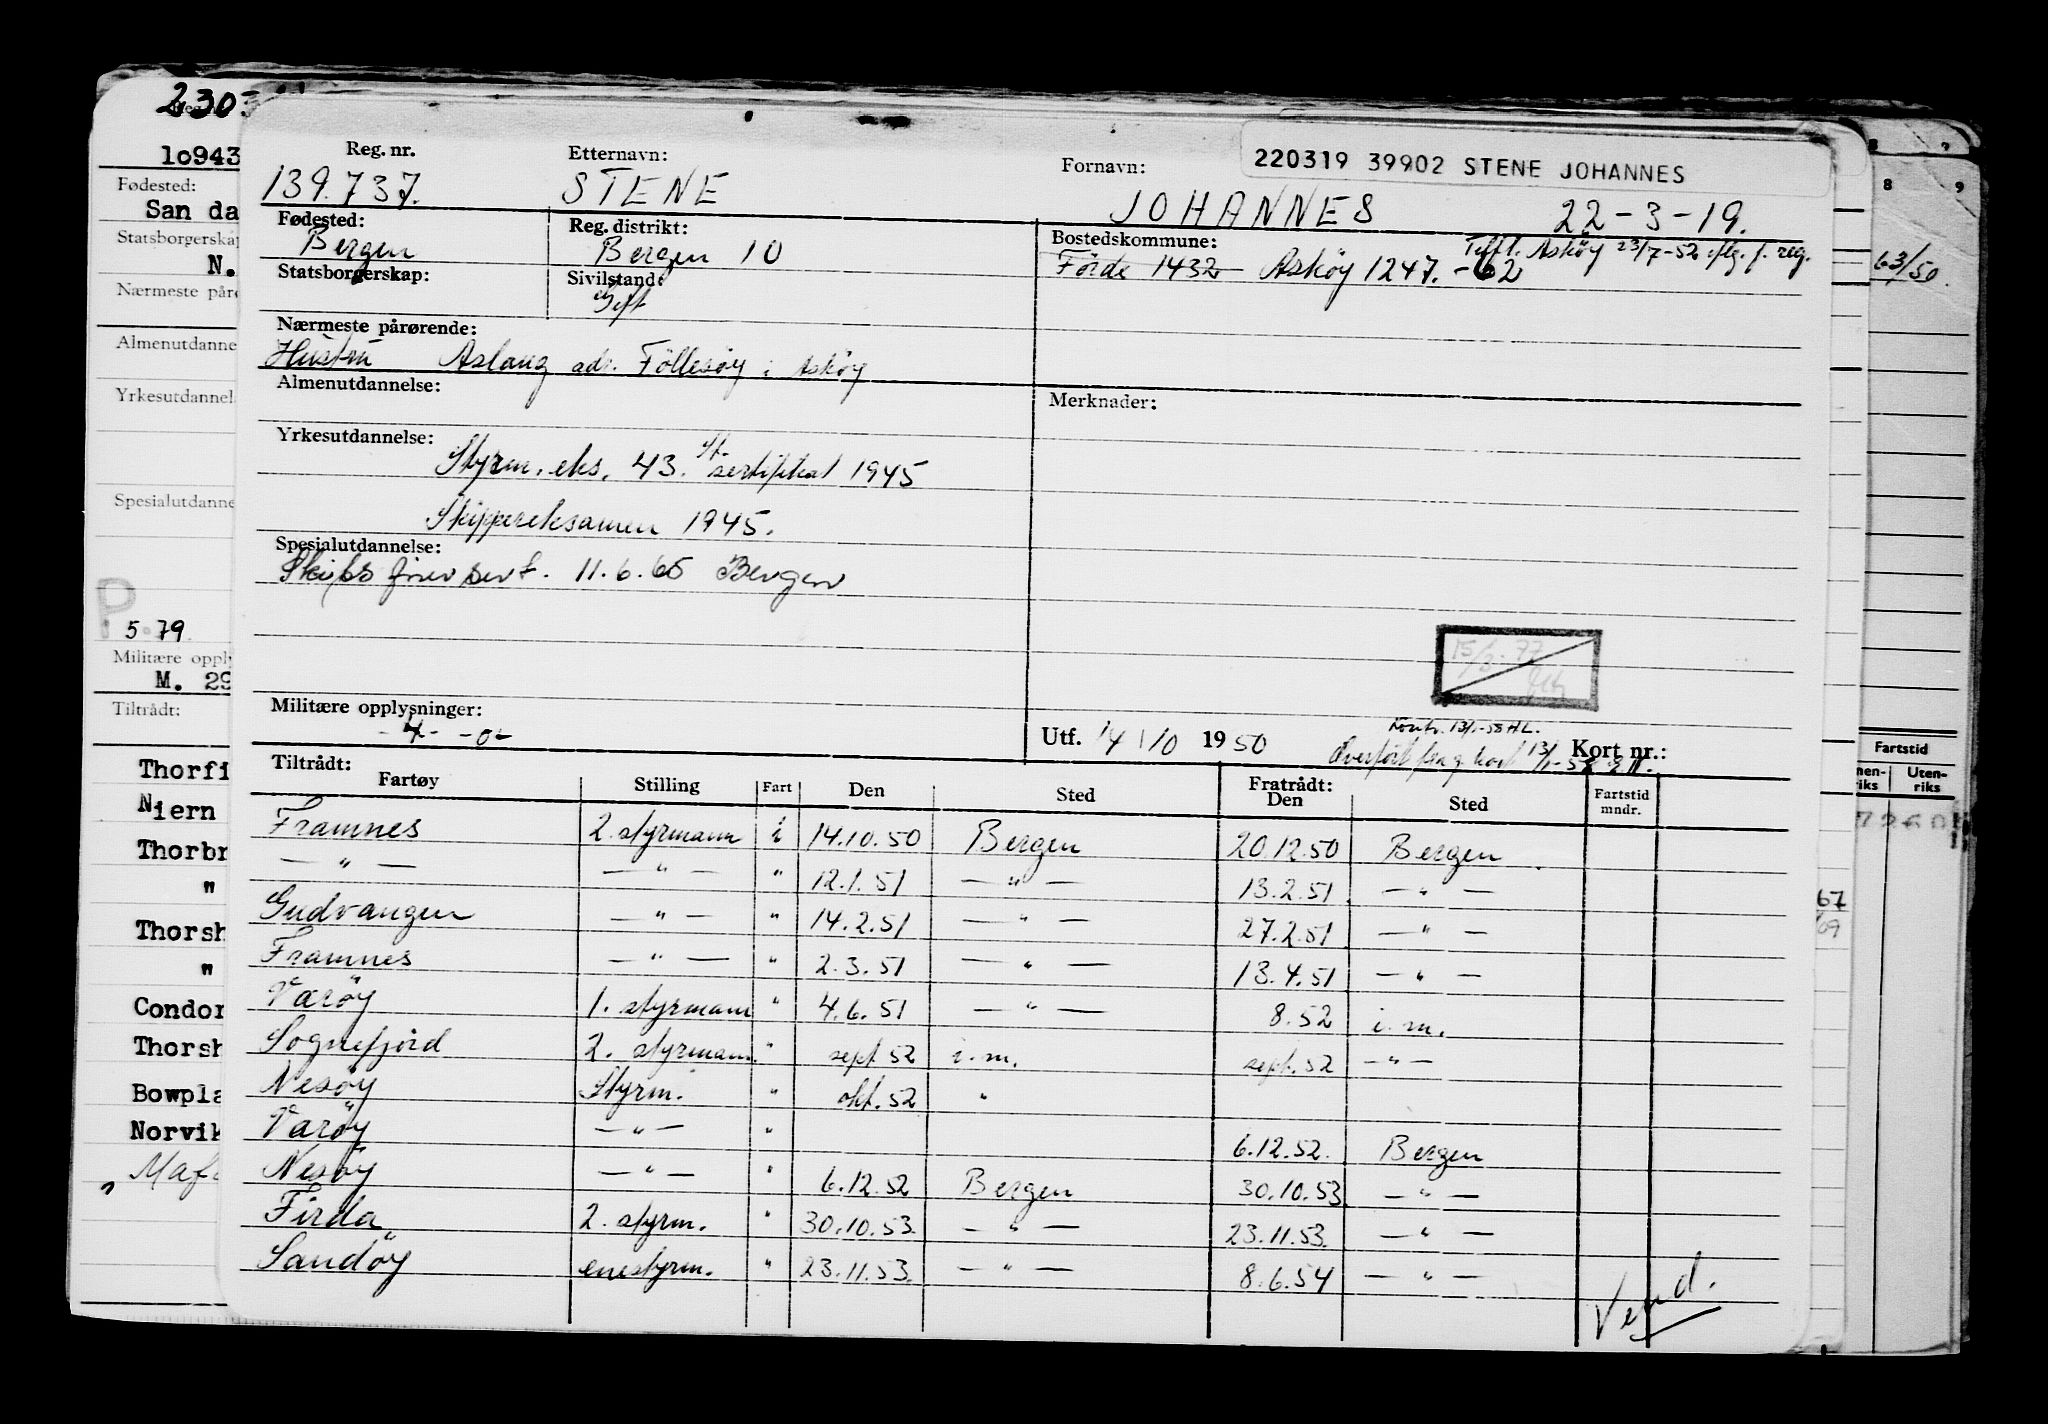 2303
Reg. nr.
Etternavn:
Fornavn:
220319 39902 STENE JOHANNES
8 9
1o943
139.737.
STENE
JOHANNES
22-3-19.
Fødested:
San da
Fødested:
Bergen
Reg. distrikt:
Bergen 10
Bostedskommune:
Tilfl. Askøy 23/7-52 iflg. f. reg.
Førde 1432 - Askøy 1247. - 62
63/50.
Statsborgerskap
N.
Statsborgerskap:
Sivilstand:
Gift
Nærmeste påre
Nærmeste pårørende:
Hustru Aslaug adr. Føllesøy i Askøy
Almenutdanne
Almenutdannelse:
Merknader:
Yrkesutdannel
Yrkesutdannelse:
Styrm. eks. 43. St. sertifikat 1945
Skippereksamen 1945.
Spesialutdanne
Spesialutdannelse:
Skibsførersert. 11.6.65 Bergen
P
5.79.
15/3-77
Militære opply
M. 29
Militære opplysninger:
Utf. 14/10 1950
Kontr. 13/1-58 HL.
Overført 13/1-58
Kort nr.:
Tiltrådt:
Tiltrådt:
Fartøy Stilling Fart Den Sted
Fratrådt:
Den Sted
Fartstid
mndr.
Fartstid
nen-
riks
Uten-
riks
Framnes 2. styrmann i 14.10.50 Bergen 20.12.50 Bergen
— " — — " — " 12.1.51 — " — 13.2.51 — " —
Gudvangen — " — " 14.2.51 — " — 27.2.51 — " —
Framnes — " — " 2.3.51 — " — 13.4.51 — " —
Værøy 1. styrmann " 4.6.51 — " — 8.52 i.m.
Sognefjord 2. styrmann. " sept 52 i.m. sept. 52 — " —
Nesøy Styrm. " okt. 52 "
Værøy — " — " 6.12.52. Bergen
Nesøy — " — " 6.12.52 Bergen 30.10.53 — " —
Firda 2. styrm. " 30.10.53. — " — 23.11.53. — " —
Sandøy enestyrm. " 23.11.53. — " — 8.6.54 — " —
Vend.
Thorfi
Niern
Thorbr
"
Thorsh
"
Condor
Thorsh
Bowpla
Norvik
67
09